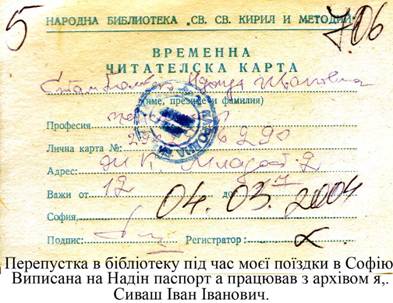 5
НАРОДНА БИБЛИОТЕКА „СВ. СВ. КИРИЛ И МЕТОДИЙ"
706
ВРЕМЕННА
ЧИТАТЕЛСКА КАРТА
Ивановна
(име, презиме и фамилия)
Професия
Лична карта №:
Адрес: ж.к. Младост-2
Важи от 12 до
София, 04.03.2004
Подпис: Регистратор:
Перепустка в бібліотеку під час моєї поїздки в Софію
Виписана на Надін паспорт а працював з архівом я,.
Сиваш Іван Іванович.